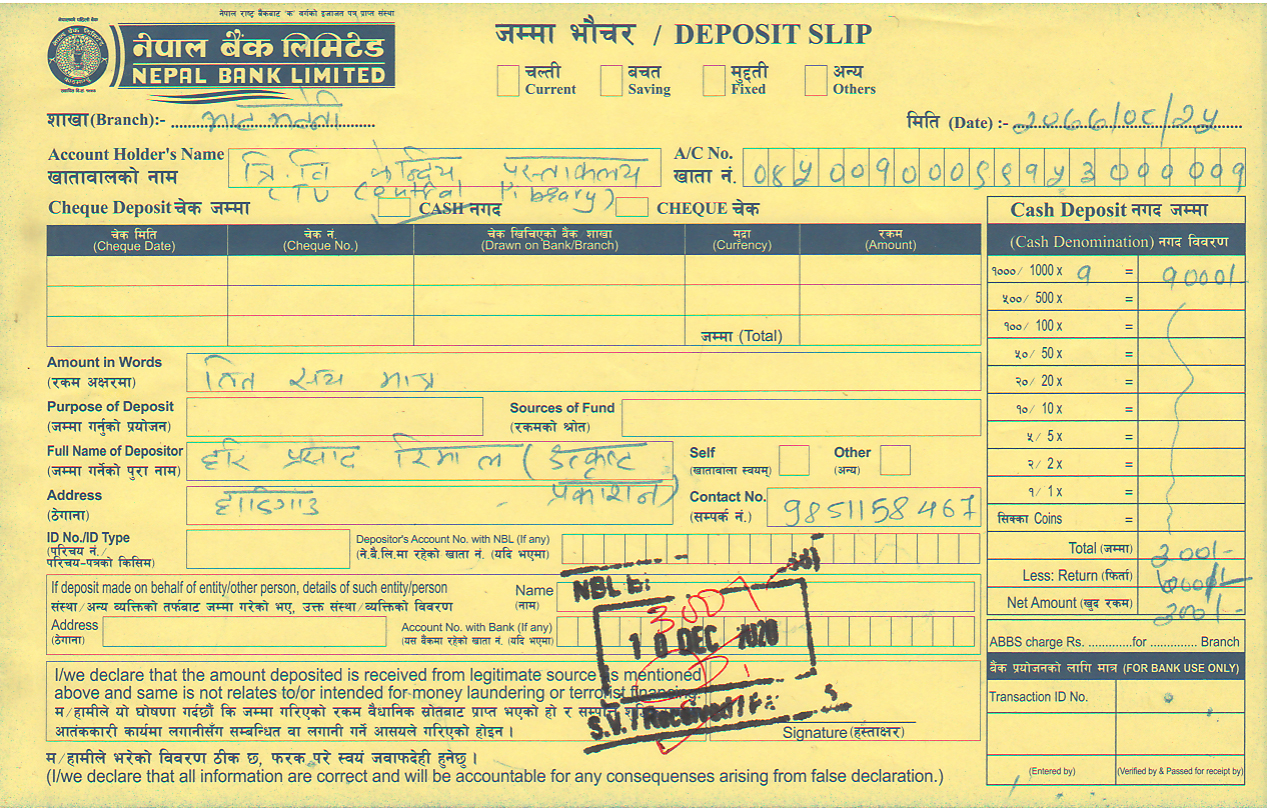 नेपाल राष्ट्र बैंकबाट 'क' वर्गको इजाजत पत्र प्राप्त संस्था
नेपाल बैंक लिमिटेड
NEPAL BANK LIMITED
जम्मा भौचर / DEPOSIT SLIP
चल्ती बचत मुद्दती अन्य
Current Saving Fixed Others
शाखा (Branch):- भाटभटेनी
मिति (Date) :- २०७७/०८/२५
Account Holder's Name त्रि.वि केन्द्रिय पुस्ताकलय
खातावालको नाम (TU Central Library)
A/C No.
खाता नं.
Cheque Deposit चेक जम्मा CASH नगद CHEQUE चेक
चेक मिति चेक नं. चेक खिचिएको बैंक शाखा मुद्रा रकम
(Cheque Date) (Cheque No.) (Drawn on Bank/Branch) (Currency) (Amount)
जम्मा (Total)
Amount in Words
(रकम अक्षरमा) तिन सय मात्र
Purpose of Deposit Sources of Fund
(जम्मा गर्नुको प्रयोजन) (रकमको श्रोत)
Full Name of Depositor हरि प्रसाद रिमाल (उत्कृष्ट
(जम्मा गर्नेको पुरा नाम) प्रकाशन)
Self Other
(खातावाला स्वयम्) (अन्य)
Address हाडिगाउ
(ठेगाना)
Contact No. 9851158467
(सम्पर्क नं.)
ID No./ID Type
(परिचय नं./
परिचय-पत्रको किसिम)
Depositor's Account No. with NBL (If any)
(ने.बै.लि.मा रहेको खाता नं. (यदि भएमा)
If deposit made on behalf of entity/other person, details of such entity/person
संस्था/अन्य ब्यक्तिको तर्फबाट जम्मा गरेको भए, उक्त संस्था/ब्यक्तिको विवरण
Name
(नाम)
Address
(ठेगाना)
Account No. with Bank (If any)
(यस बैंकमा रहेको खाता नं. (यदि भएमा)
NBL
300/
10 DEC 2020
S.V./Received/
I/we declare that the amount deposited is received from legitimate source as mentioned
above and same is not relates to/or intended for money laundering or terrorist financing.
म/हामीले यो घोषणा गर्दछौं कि जम्मा गरिएको रकम वैधानिक स्रोतबाट प्राप्त भएको हो र सम्पत्ति
आतंककारी कार्यमा लगानीसँग सम्बन्धित वा लगानी गर्ने आसयले गरिएको होइन ।
Signature (हस्ताक्षर)
म/हामीले भरेको विवरण ठीक छ, फरक परे स्वयं जवाफदेही हुनेछु ।
(I/we declare that all information are correct and will be accountable for any consequences arising from false declaration.)
Cash Deposit नगद जम्मा
(Cash Denomination) नगद विवरण
१०००/ 1000 x १ = १०००/-
५००/ 500 x =
१००/ 100 x =
५०/ 50 x =
२०/ 20 x =
१०/ 10 x =
५/ 5 x =
२/ 2 x =
१/ 1 x =
सिक्का Coins =
Total (जम्मा) ३००/-
Less: Return (फिर्ता) ७००/-
Net Amount (खुद रकम) ३००/-
ABBS charge Rs. .............for ............. Branch
बैंक प्रयोजनको लागि मात्र (FOR BANK USE ONLY)
Transaction ID No.
(Entered by) (Verified by & Passed for receipt by)